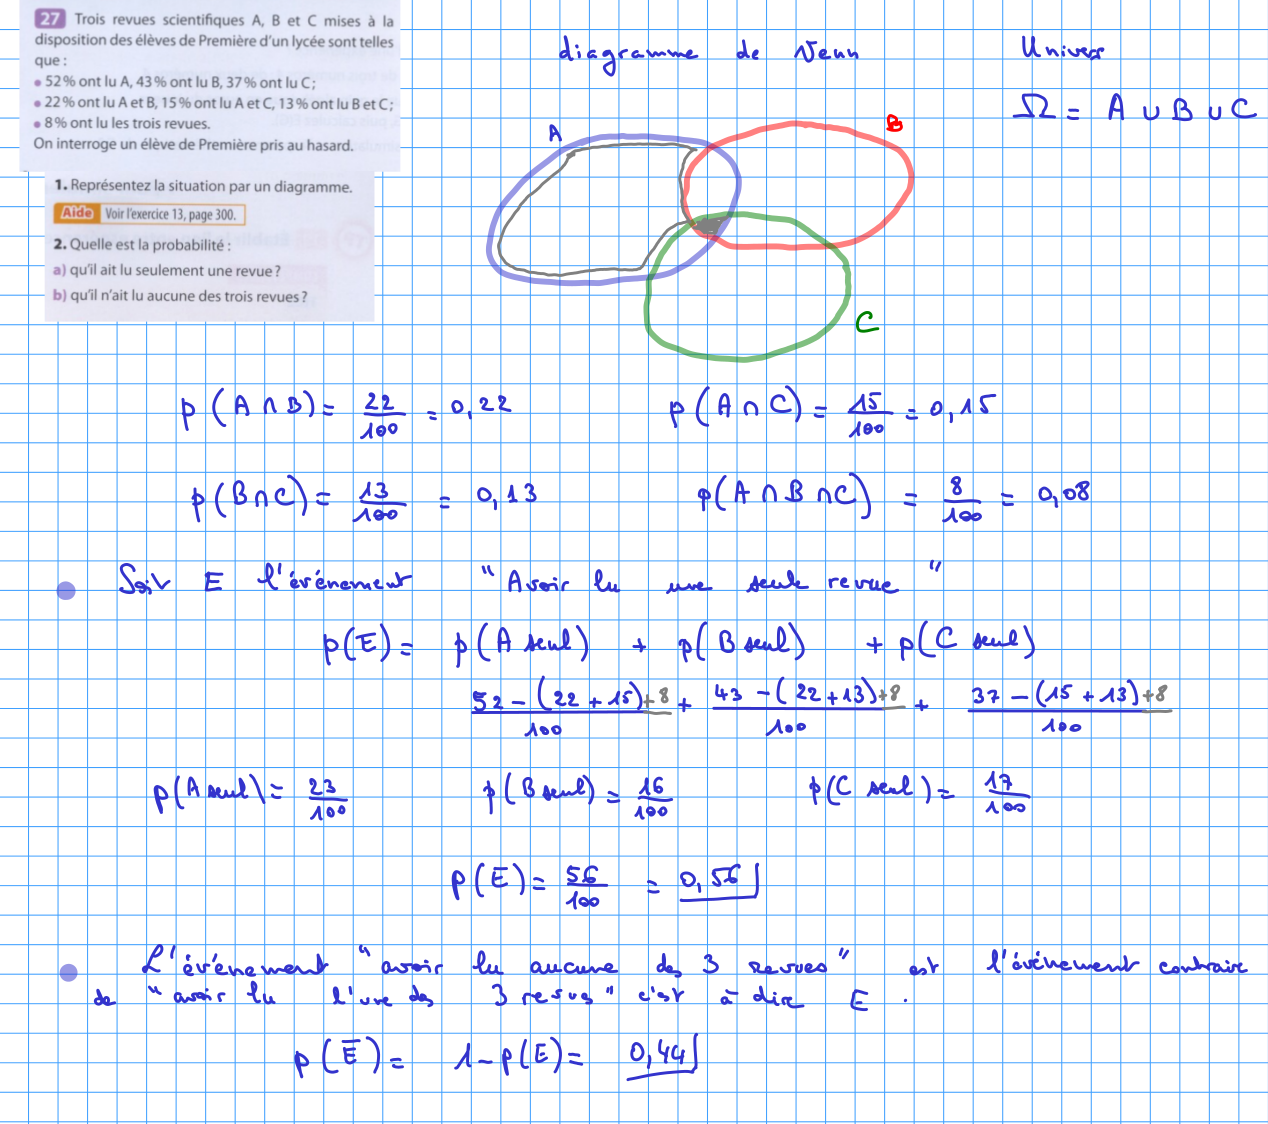 27 Trois revues scientifiques A, B et C mises à la
disposition des élèves de Première d'un lycée sont telles
que :
• 52% ont lu A, 43% ont lu B, 37% ont lu C ;
• 22% ont lu A et B, 15% ont lu A et C, 13% ont lu B et C ;
• 8% ont lu les trois revues.
On interroge un élève de Première pris au hasard.
1. Représentez la situation par un diagramme.
Aide Voir l'exercice 13, page 300.
2. Quelle est la probabilité :
a) qu'il ait lu seulement une revue ?
b) qu'il n'ait lu aucune des trois revues ?
diagramme de Venn
Univers
Ω = A ∪ B ∪ C
A
B
C
p(A ∩ B) = 22/100 = 0,22
p(A ∩ C) = 15/100 = 0,15
p(B ∩ C) = 13/100 = 0,13
p(A ∩ B ∩ C) = 8/100 = 0,08
• Soit E l'événement "Avoir lu une seule revue"
p(E) = p(A seul) + p(B seul) + p(C seul)
52 - (22 + 15) + 8 / 100 + 43 - (22 + 13) + 8 / 100 + 37 - (15 + 13) + 8 / 100
p(A seul) = 23/100 p(B seul) = 16/100 p(C seul) = 17/100
p(E) = 56/100 = 0,56
• L'événement "avoir lu aucune des 3 revues" est l'événement contraire
de "avoir lu l'une des 3 revues" c'est à dire E .
p(E̅) = 1 - p(E) = 0,44